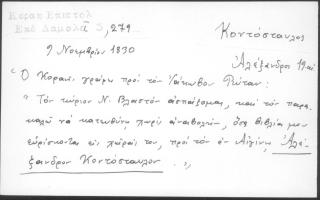 Κοραη Επιστολ
Εκδ Δαμαλᾶ 3, 279
Κοντόσταυλος
Ἀλέξανδρος
9 Νοεμβρίου 1830
"Ὁ Κοραῆς γράφει πρὸς τὸν Ἰάκωβον Ρώταν:
" Τὸν κύριον Ν. Βλαστὸν ἀσπάζομαι, καὶ τὸν παρα-
καλῶ νὰ κατευθύνῃ χωρὶς ἀναβολὴν, ὅσα βιβλία μου
εὑρίσκονται εἰς χεῖράς του, πρὸς τὸν ἐν Αἰγίνῃ Ἀλέ-
ξανδρον Κοντόσταυλον . "